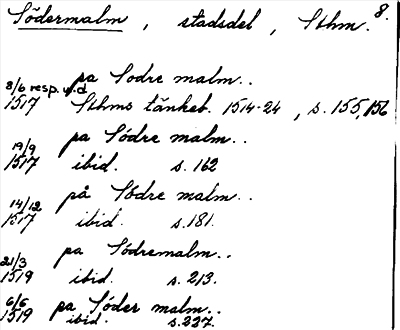 Södermalm, stadsdel, Sthm. 8.
pa Sodre malm..
8/6 resp. u.d
1517 Sthms tänkeb. 1514-24, s. 155, 156
pa Södre malm..
19/9
1517 ibid. s. 162
på Södre malm..
14/12
1517 ibid. s. 181.
pa Södremalm..
21/3
1519 ibid. s. 213.
6/6 pa Söder malm..
1519 ibid. s. 227.